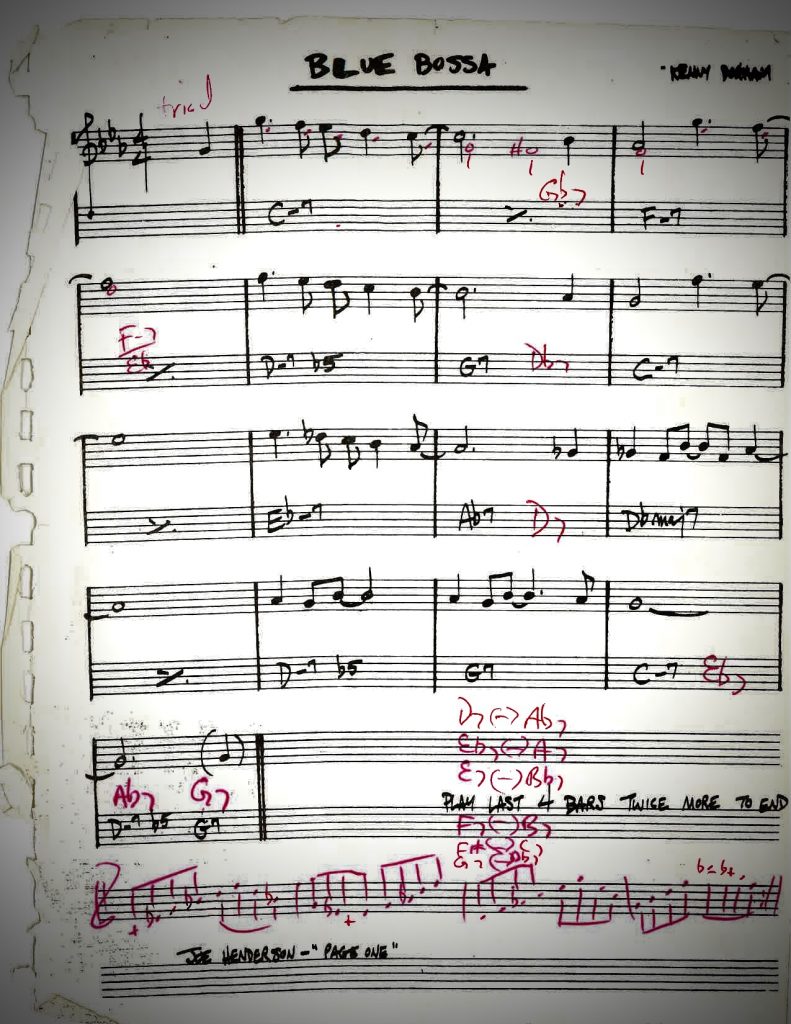 BLUE BOSSA
- KENNY DORHAM
C-7 F-7
Gb7
F-7
Eb D-7 b5 G7 Db7 C-7
Eb-7 Ab7 D7 Dbmaj7
D-7 b5 G7 C-7 Eb7
D7 (-) Ab7
Eb7 (-) A7
E7 (-) Bb7
Ab7 G7
PLAY LAST 4 BARS TWICE MORE TO END
D-7 b5 G7
F7 (-) B7
G7 (-) Db7
JOE HENDERSON - "PAGE ONE"